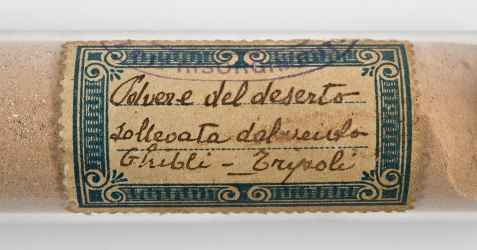 Polvere del deserto
sollevata dal vento
Ghibli - Tripoli